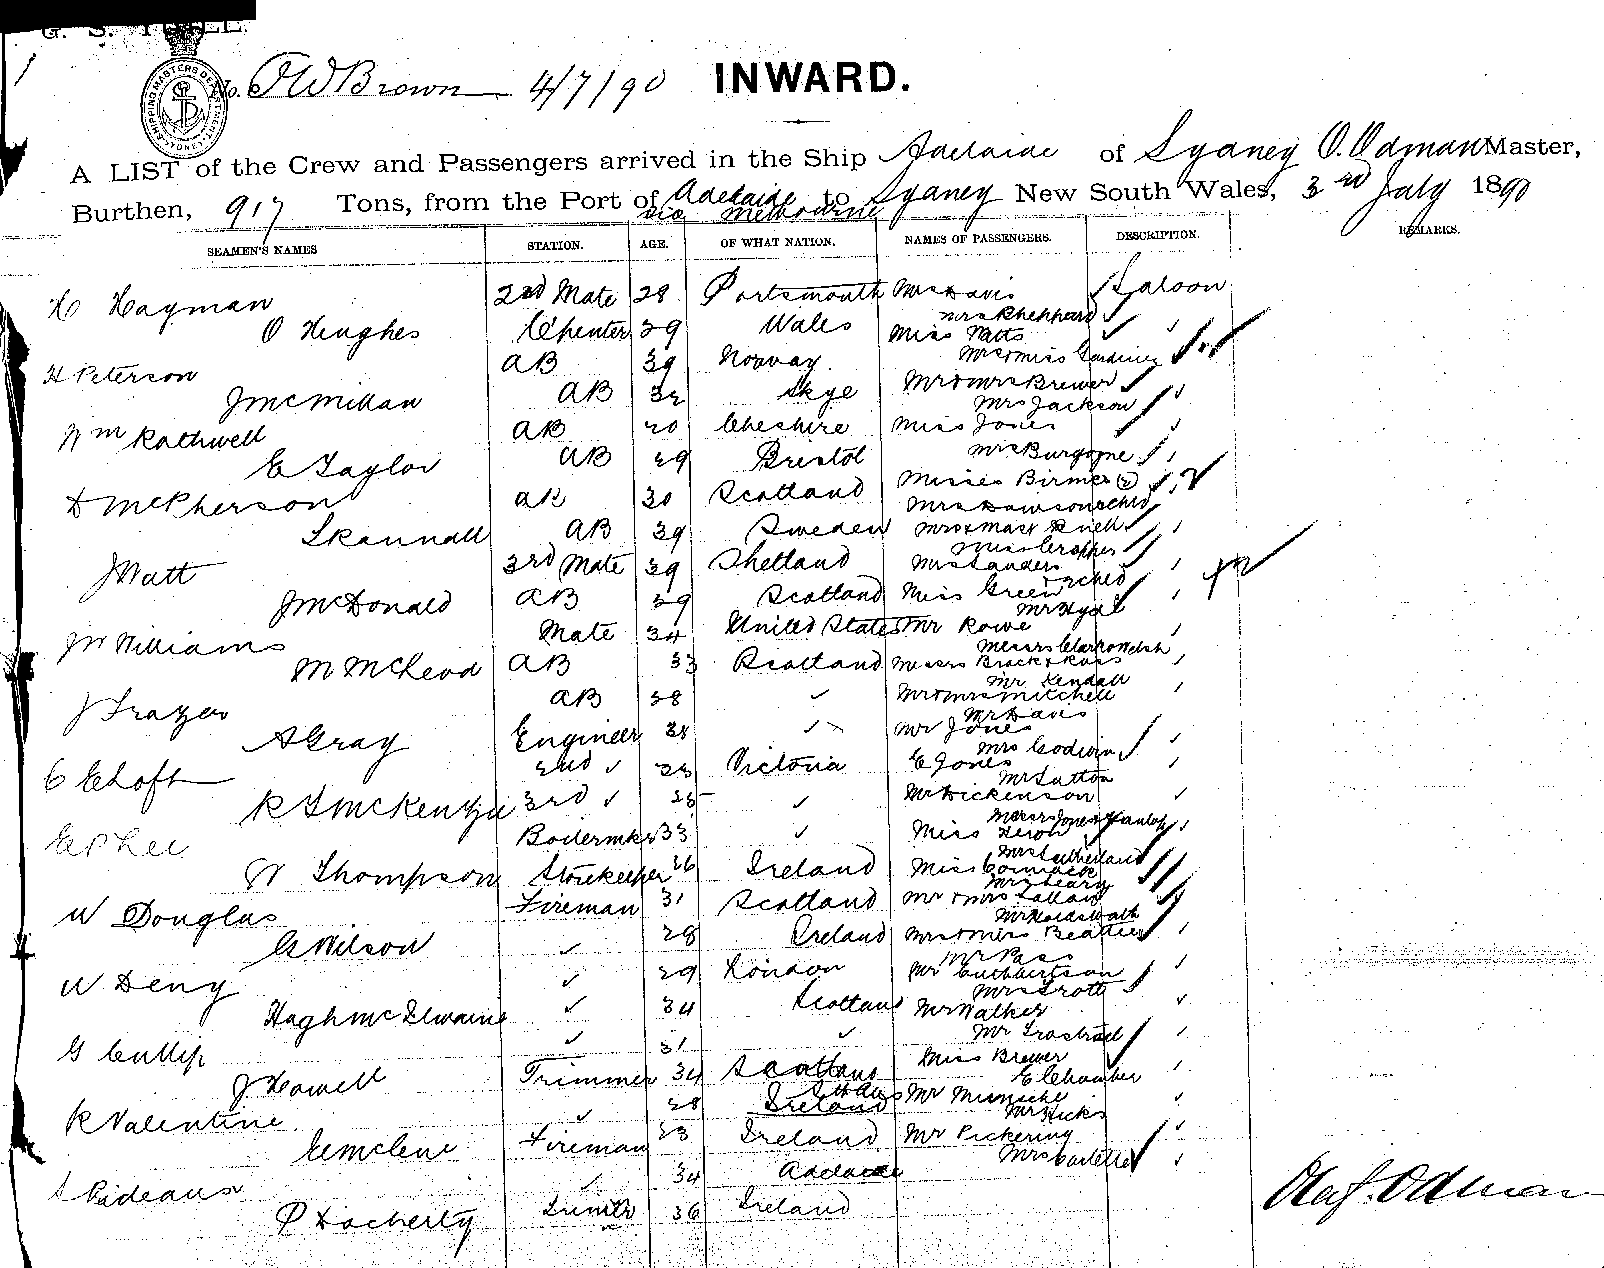 No. P W Brown 4/7/90 INWARD.
A LIST of the Crew and Passengers arrived in the Ship Adelaide of Sydney O. Odman Master,
Burthen, 917 Tons, from the Port of Adelaide to Sydney New South Wales, 3rd July 1890
via Melbourne
SEAMEN'S NAMES STATION. AGE. OF WHAT NATION. NAMES OF PASSENGERS. DESCRIPTION. REMARKS.
H Hayman 2nd Mate 28 Portsmouth Mrs Davis Saloon
Mrs Rheppard
O Hughes C'penter 39 Wales Miss Potts
Mrs & Miss Gardiner
H Peterson AB 39 Norway
Mr & Mrs Brewer
J McMillan AB 32 Skye
Mrs Jackson
Wm Rathwell AB 20 Cheshire Miss Jones
Mrs Burgoyne
E Taylor AB 29 Bristol
Misses Birmer (2)
D McPherson AB 30 Scotland Mrs Dawson & chld
Skannall AB 39 Sweden Mrs & Mast Knell
Miss Cropper
J Watt 3rd Mate 39 Shetland Mrs Sanders & child
J McDonald AB 29 Scotland Miss Green
Mr Hyde
J W Williams Mate 34 United States Mr Rowe
Messrs Clark & Welsh
M McLeod AB 33 Scotland Messrs Brock & Ross
Mr Kendall
J Frazer AB 38 ✓ Mr & Mrs Mitchell
Mr Davis
A Gray Engineer 38 ✓ Mr Jones
Mrs Godwin
C Cloft 2nd ✓ 23 Victoria E Jones
Mr Sutton
R S McKenzie 3rd ✓ 25 ✓ Mr Dickenson
Messrs Jones &
E P Lee Boilermker 33 ✓ Miss Heron
Mrs Sutherland
W Thompson Storekeeper 26 Ireland Miss Cormack
Mrs Leary
W Douglas Fireman 31 Scotland Mr & Mrs
Mr Holdsworth
G Wilson ✓ 28 Ireland Mrs & Miss Beattie
Mr Pass
W Deny ✓ 29 London Mr Cuthbertson
Mrs Trott
Hugh McIlwaine ✓ 34 Scotland Mr Walker
Mr
G Cullip ✓ 31 ✓ Miss Brewer
J Howell Trimmer 34 Scotland E Chomber
R Valentine ✓ 28 Ireland Mr
Mr Hicks
C McClene Fireman 23 Ireland Mr Pickering
Mrs
✓ 34 Adelaide
P Docherty Trimr 36 Ireland
Olaf. Odman